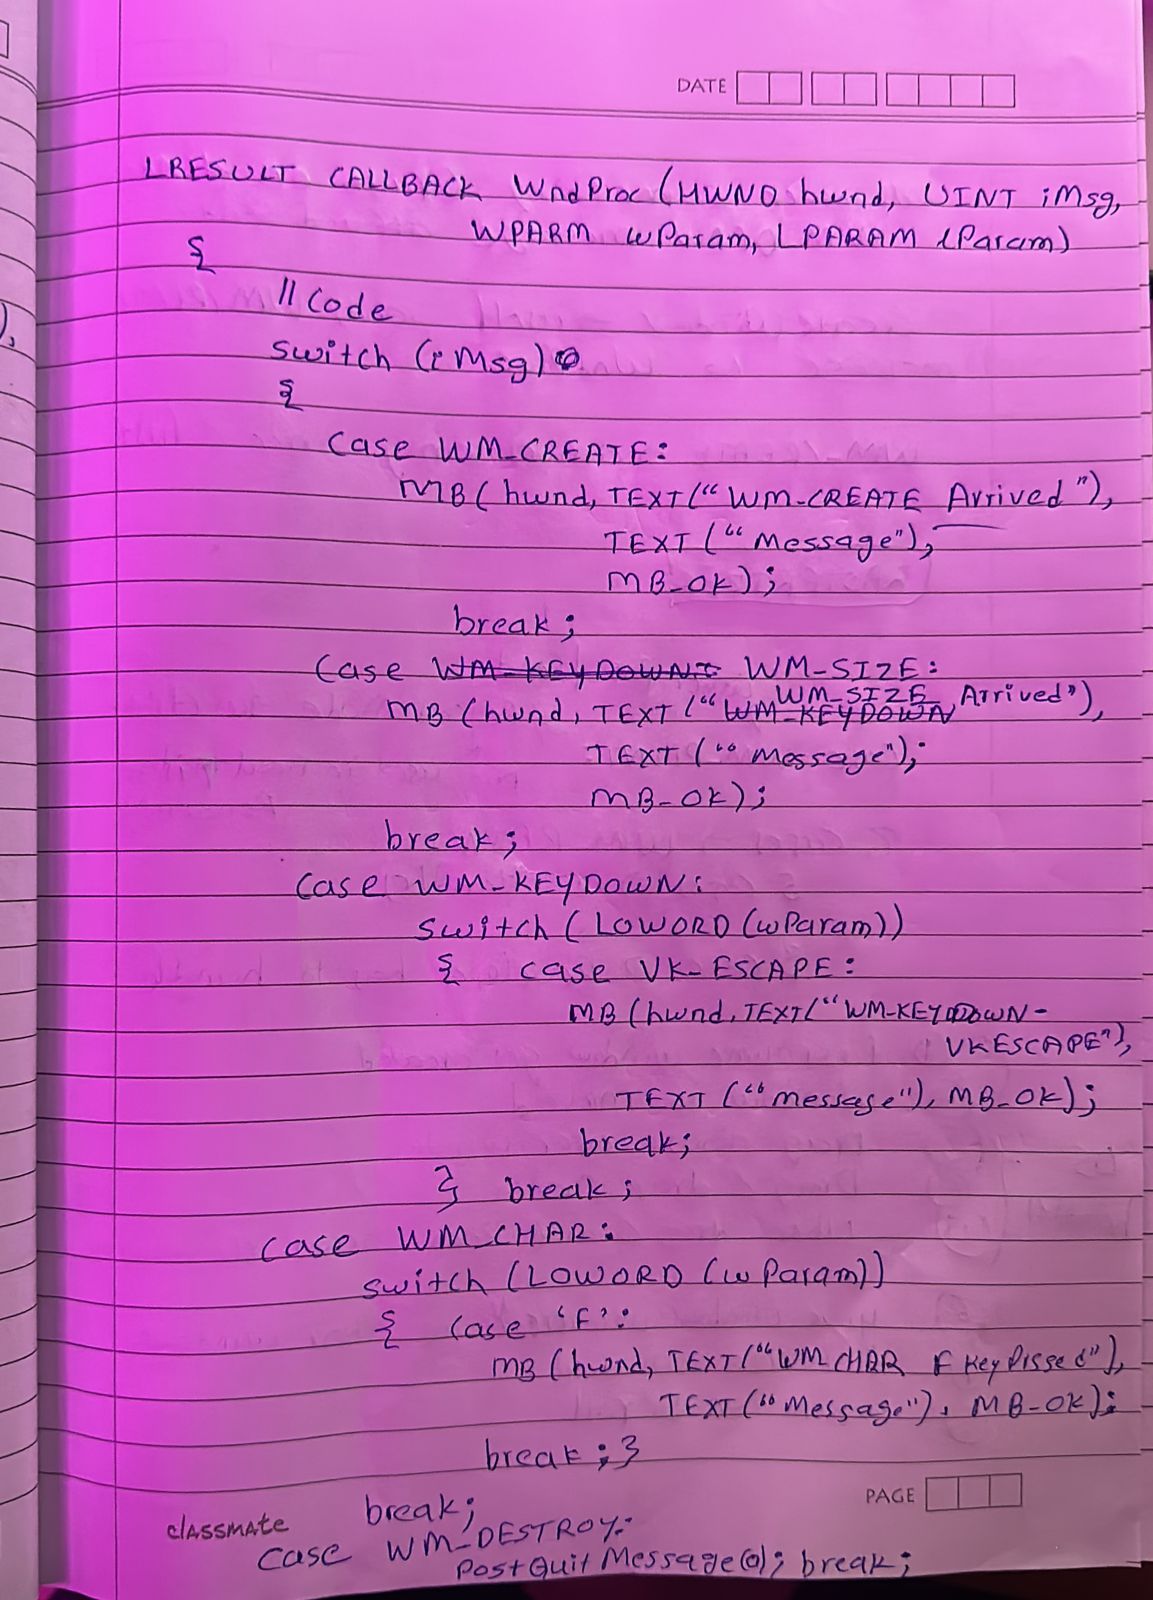 DATE
LRESULT CALLBACK WndProc (HWND hwnd, UINT iMsg,
WPARM wParam, LPARAM lParam)
{
// Code
switch (iMsg)
{
case WM_CREATE:
MB (hwnd, TEXT("WM-CREATE Arrived"),
TEXT ("Message"),
MB_OK);
break;
case WM_KEYDOWN: WM-SIZE:
WM_SIZE
MB (hwnd, TEXT ("WM_KEYDOWN Arrived"),
TEXT ("Message");
MB-OK);
break;
case WM-KEYDOWN:
switch (LOWORD (wParam))
{ case VK-ESCAPE:
MB (hwnd, TEXT("WM-KEYDOWN-
VKESCAPE"),
TEXT ("message"), MB_OK);
break;
} break;
case WM_CHAR:
switch (LOWORD (wParam))
{ case 'F':
MB (hwnd, TEXT("WM CHAR F Key Pissed"),
TEXT ("Message"), MB-OK);
break; }
PAGE
break;
classmate
case WM-DESTROY:
PostQuit Message(0); break;